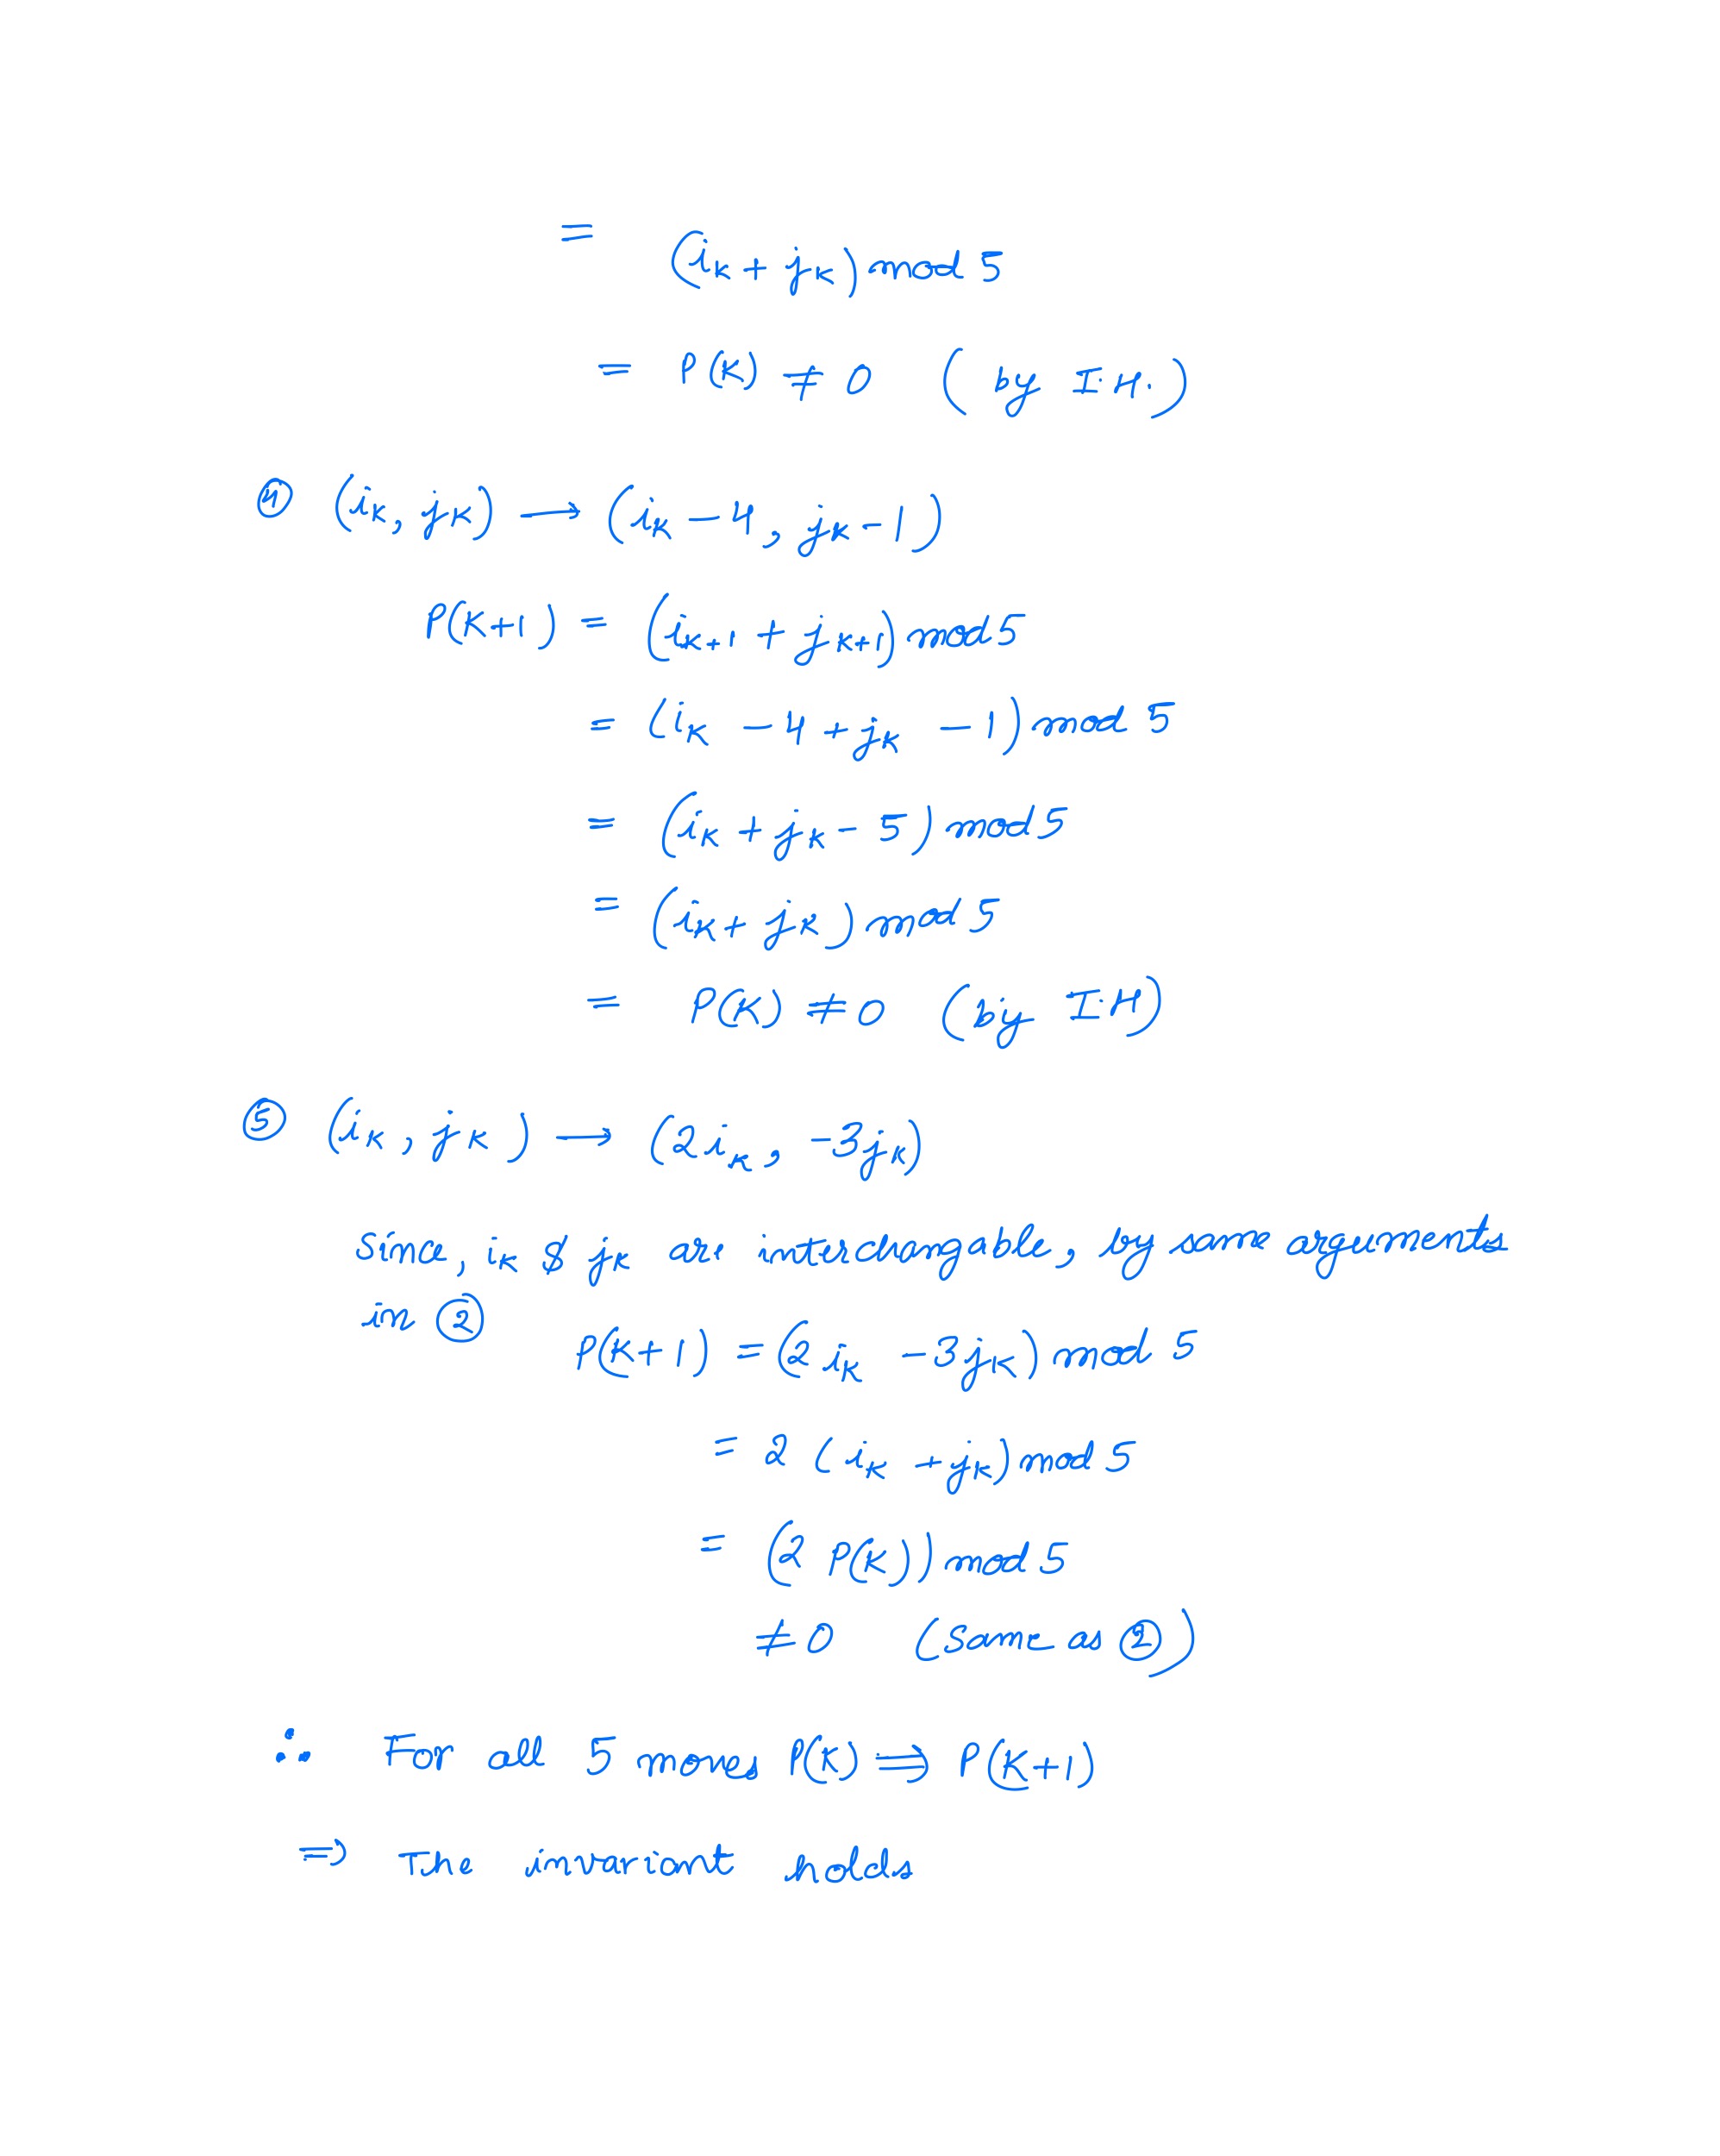 =    (i_k + j_k) mod 5
= P(k) ≠ 0 (by I.H.)
④ (i_k, j_k) → (i_k - 4, j_k - 1)
P(k+1) = (i_{k+1} + j_{k+1}) mod 5
= (i_k - 4 + j_k - 1) mod 5
= (i_k + j_k - 5) mod 5
= (i_k + j_k) mod 5
= P(k) ≠ 0 (by I.H)
⑤ (i_k, j_k) → (2i_k, -3j_k)
since, i_k & j_k are interchangable, by same arguments
in ②
P(k+1) = (2i_k - 3j_k) mod 5
= 2 (i_k + j_k) mod 5
= (2 P(k)) mod 5
≠ 0 (same as ②)
∴ For all 5 moves P(k) ⟹ P(k+1)
⇒ The invariant holds